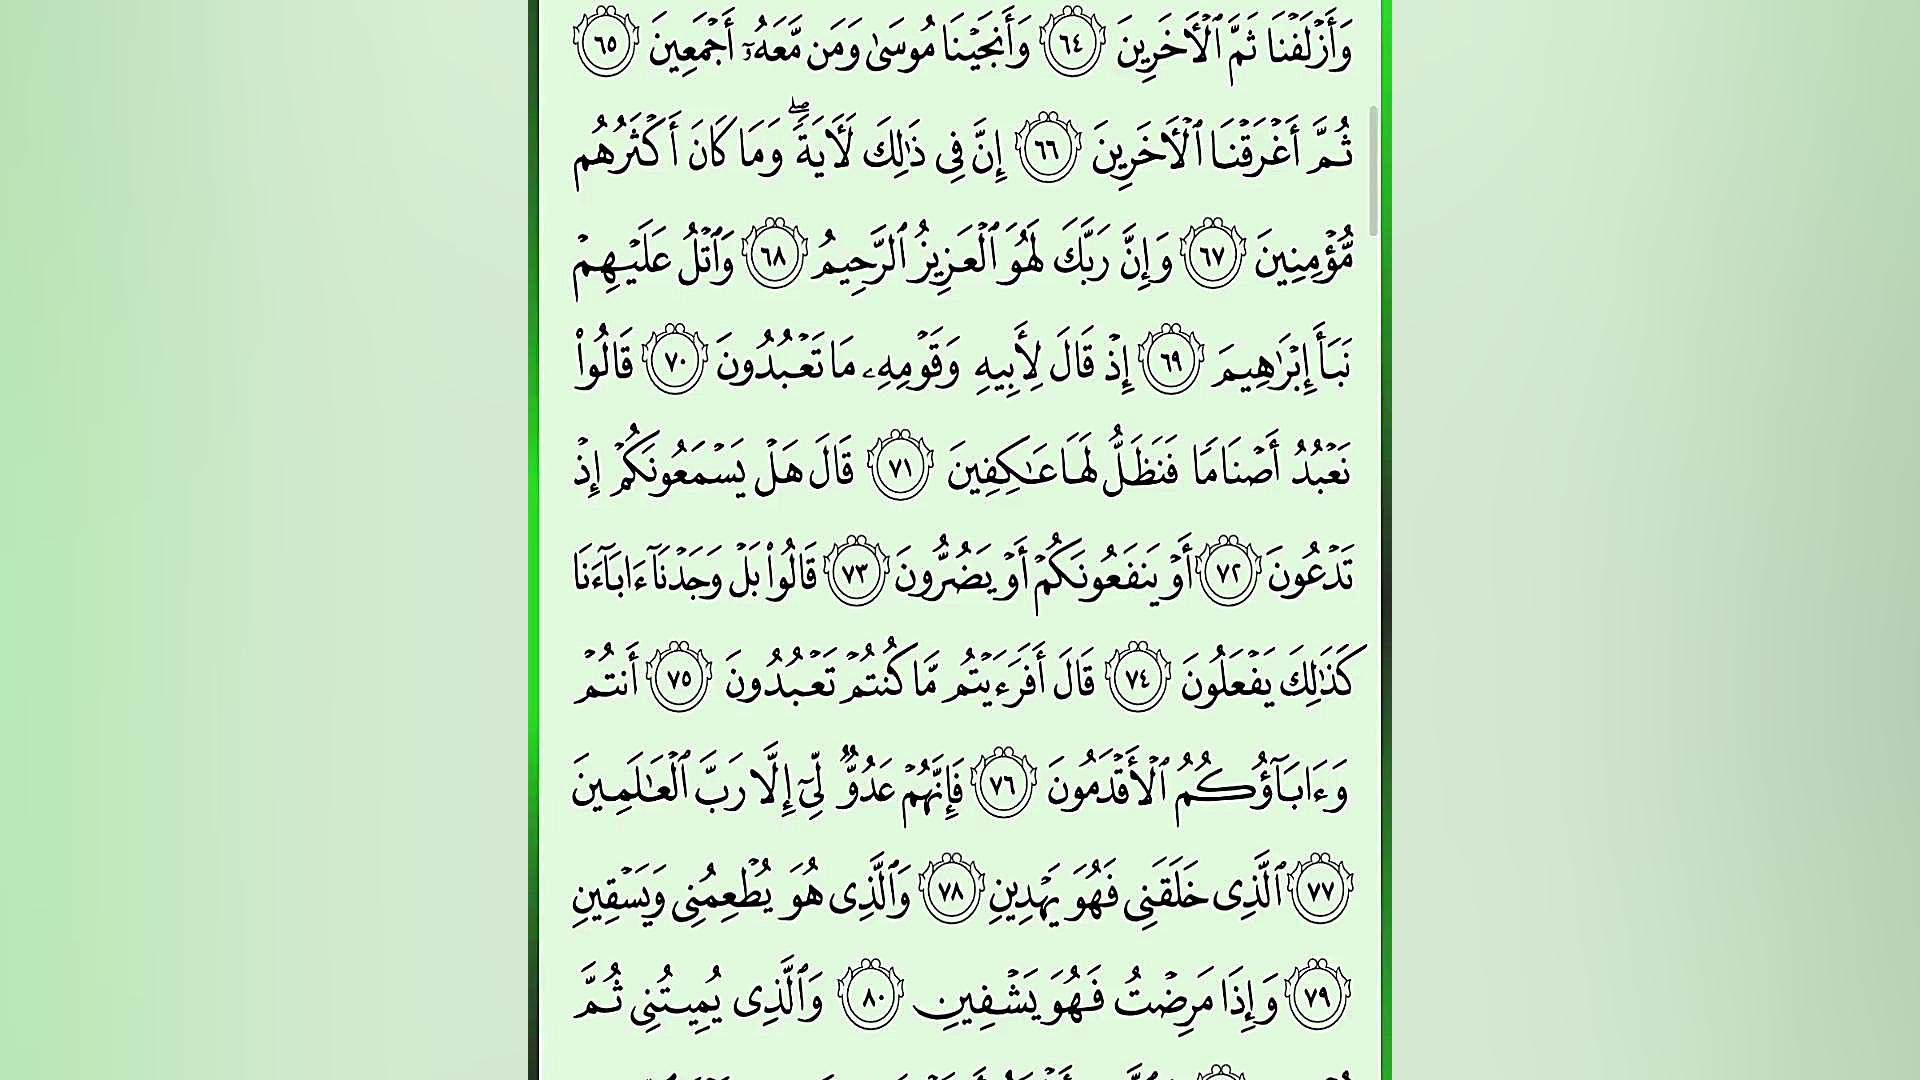 وَأَزْلَفْنَا ثَمَّ ٱلْأَخَرِينَ ٦٤ وَأَنجَيْنَا مُوسَىٰ وَمَن مَّعَهُۥٓ أَجْمَعِينَ ٦٥
ثُمَّ أَغْرَقْنَا ٱلْأَخَرِينَ ٦٦ إِنَّ فِى ذَٰلِكَ لَأَيَةً ۖ وَمَا كَانَ أَكْثَرُهُم
مُّؤْمِنِينَ ٦٧ وَإِنَّ رَبَّكَ لَهُوَ ٱلْعَزِيزُ ٱلرَّحِيمُ ٦٨ وَٱتْلُ عَلَيْهِمْ
نَبَأَ إِبْرَٰهِيمَ ٦٩ إِذْ قَالَ لِأَبِيهِ وَقَوْمِهِۦ مَا تَعْبُدُونَ ٧٠ قَالُوا۟
نَعْبُدُ أَصْنَامًا فَنَظَلُّ لَهَا عَٰكِفِينَ ٧١ قَالَ هَلْ يَسْمَعُونَكُمْ إِذْ
تَدْعُونَ ٧٢ أَوْ يَنفَعُونَكُمْ أَوْ يَضُرُّونَ ٧٣ قَالُوا۟ بَلْ وَجَدْنَآ ءَابَآءَنَا
كَذَٰلِكَ يَفْعَلُونَ ٧٤ قَالَ أَفَرَءَيْتُم مَّا كُنتُمْ تَعْبُدُونَ ٧٥ أَنتُمْ
وَءَابَآؤُكُمُ ٱلْأَقْدَمُونَ ٧٦ فَإِنَّهُمْ عَدُوٌّ لِّىٓ إِلَّا رَبَّ ٱلْعَٰلَمِينَ
٧٧ ٱلَّذِى خَلَقَنِى فَهُوَ يَهْدِينِ ٧٨ وَٱلَّذِى هُوَ يُطْعِمُنِى وَيَسْقِينِ
٧٩ وَإِذَا مَرِضْتُ فَهُوَ يَشْفِينِ ٨٠ وَٱلَّذِى يُمِيتُنِى ثُمَّ